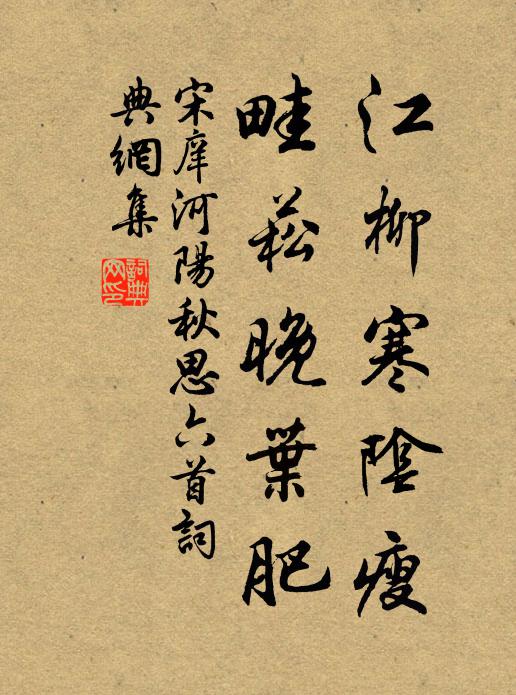 江柳寒陰瘦
畦菘晚葉肥
宋庠河陽秋思六首詞
典網集
詞典網印